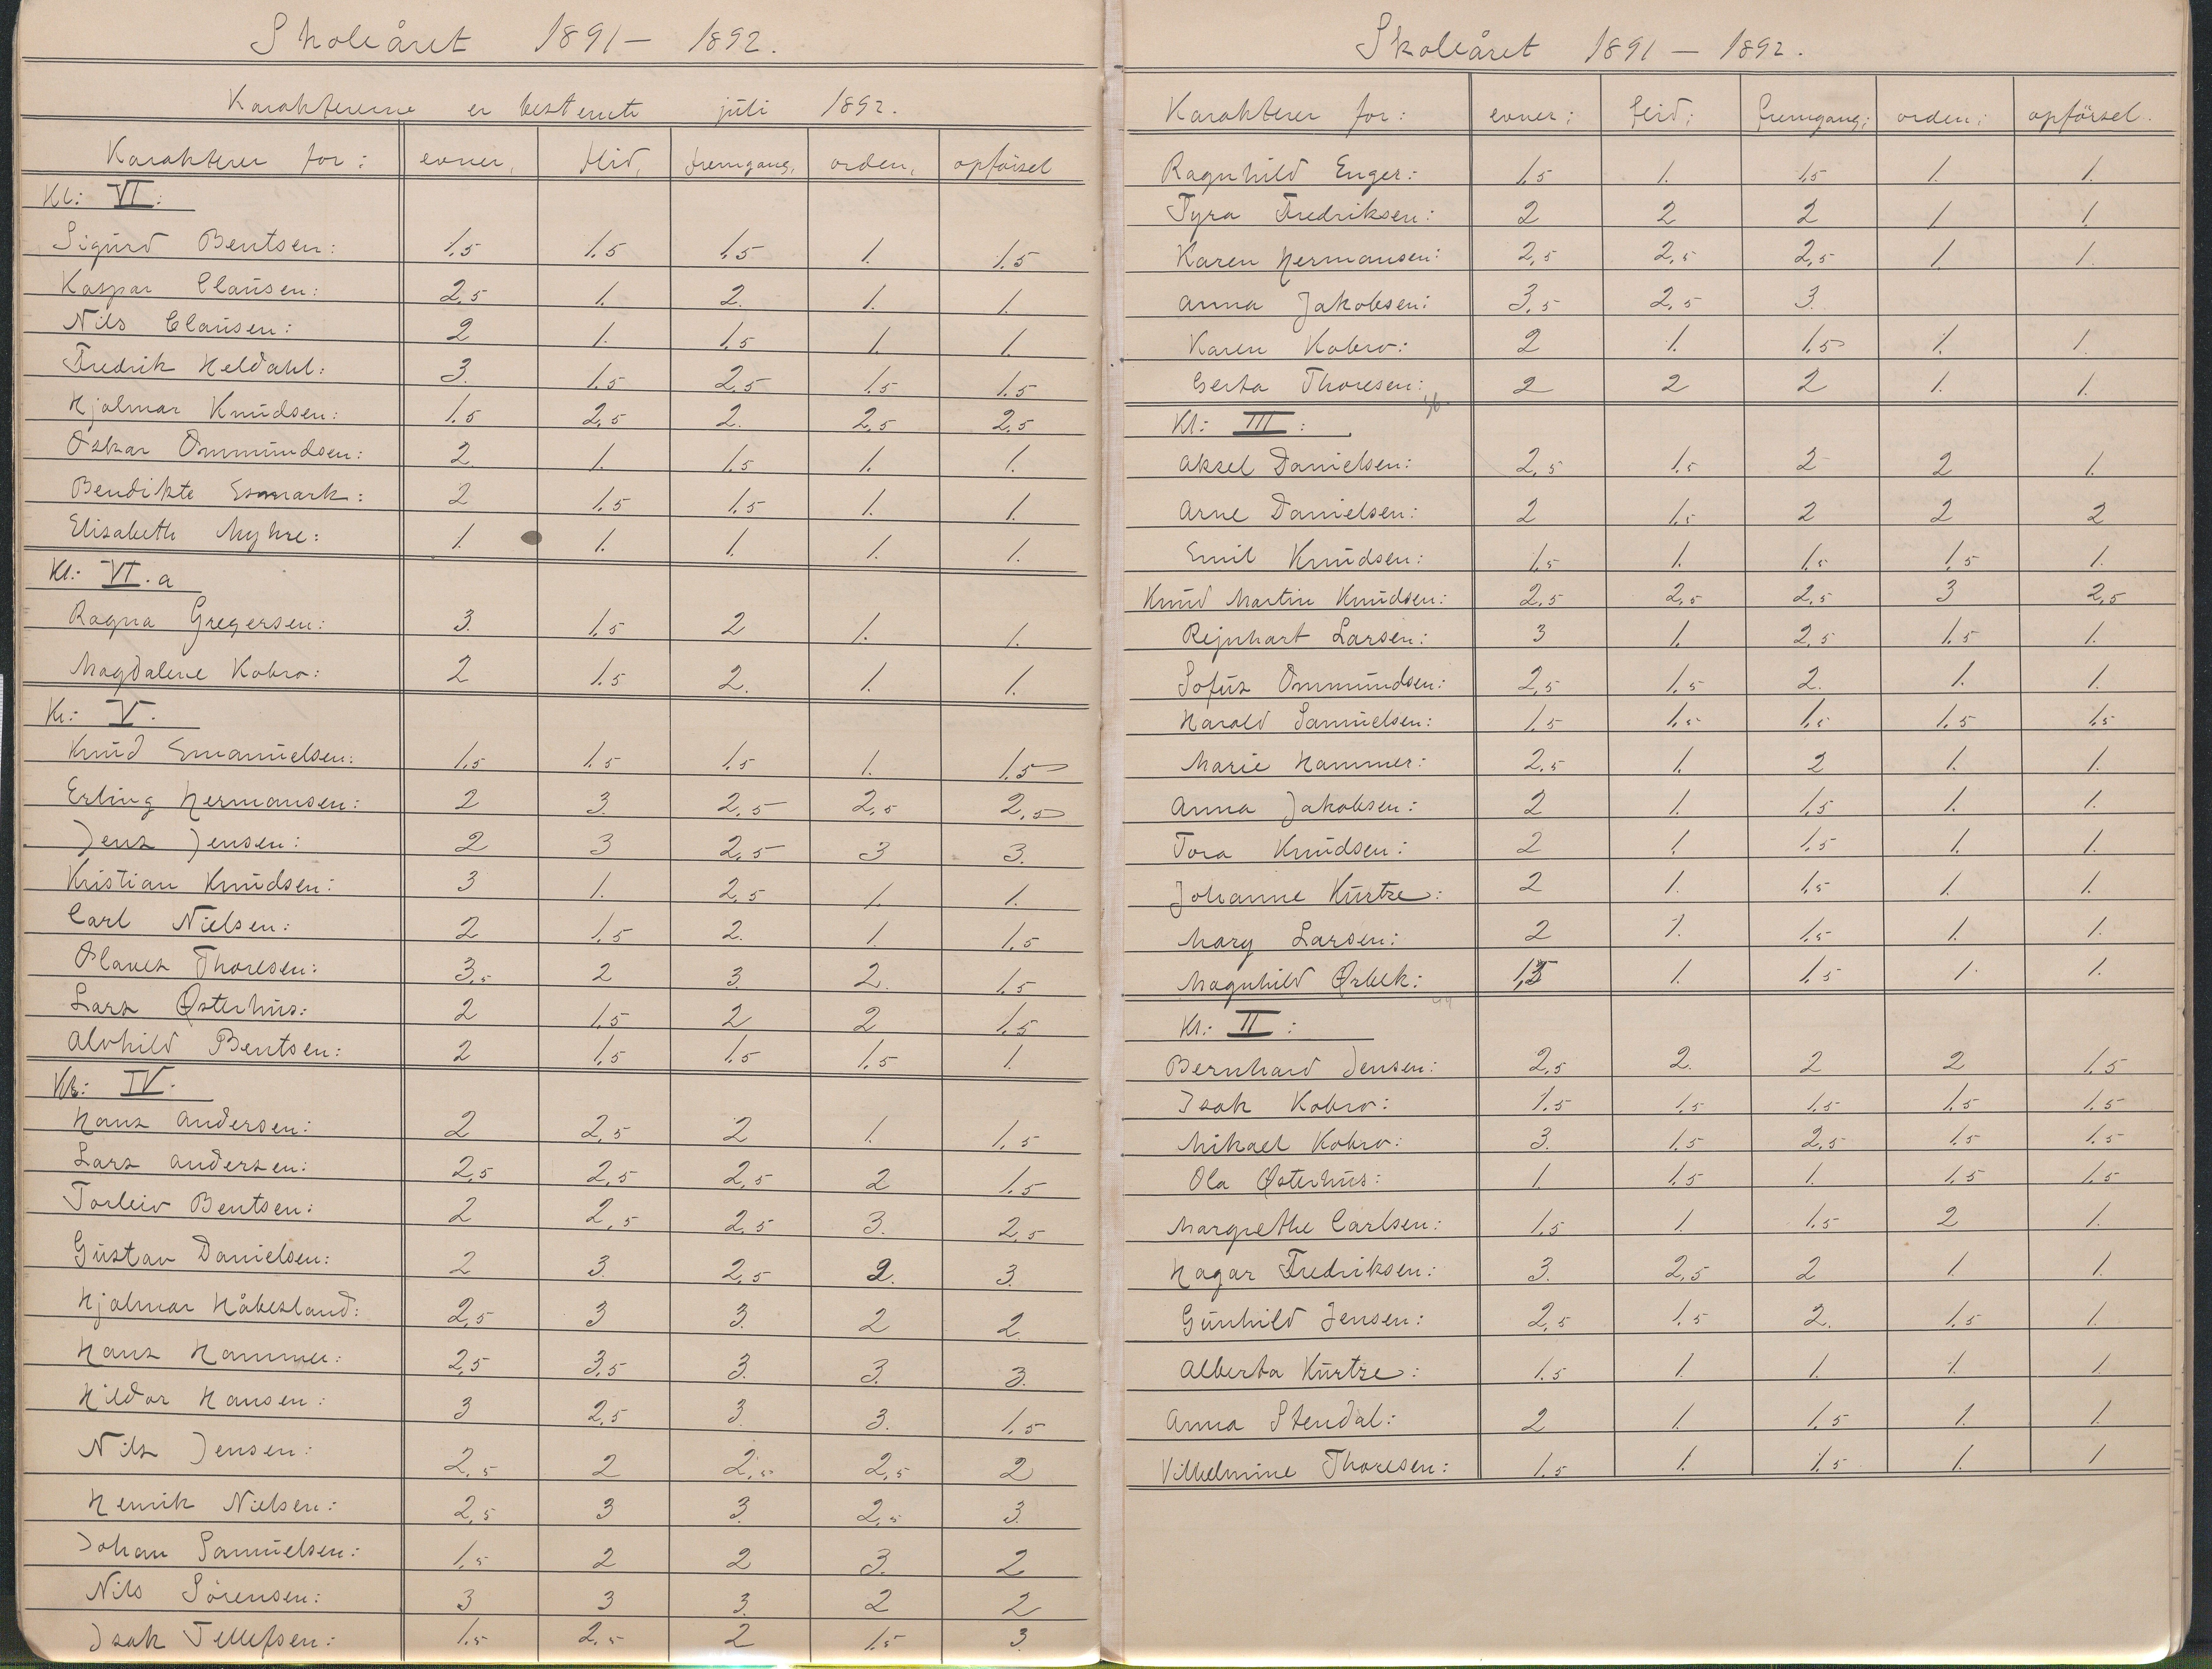 Skoleåret 1891 — 1892.
Karaktererne er bestemte juli 1892.
Karakterer for: evner, flid, fremgang, orden, opförsel
Kl: VI:
Sigurd Bentsen: 1.5 1.5 1.5 1. 1.5
Kaspar Clausen: 2.5 1. 2. 1. 1.
Nils Clausen: 2 1. 1.5 1. 1.
Fredrik Heldahl: 3. 1.5 2.5 1.5 1.5
Hjalmar Knudsen: 1.5 2.5 2. 2.5 2.5
Oskar Ommundsen: 2. 1. 1.5 1. 1.
Bendikte Esmark: 2 1.5 1.5 1. 1.
Elisabeth Myhre: 1. 1. 1. 1. 1.
Kl: VI.a
Ragna Gregersen: 3. 1.5 2 1. 1.
Magdalene Kobro: 2 1.5 2. 1. 1.
Kl: V.
Knud Emanuelsen: 1.5 1.5 1.5 1. 1.5
Erling Hermansen: 2 3. 2.5 2.5 2.5
Jens Jensen: 2 3 2.5 3 3.
Kristian Knudsen: 3 1. 2.5 1. 1.
Carl Nielsen: 2 1.5 2. 1. 1.5
Olaves Thoresen: 3.5 2 3. 2. 1.5
Lars Østerhus: 2 1.5 2 2 1.5
Alvhild Bentsen: 2 1.5 1.5 1.5 1.
Kl: IV.
Hans Andersen: 2 2.5 2 1. 1.5
Lars Andersen: 2.5 2.5 2.5 2 1.5
Torleiv Bentsen: 2 2.5 2.5 3. 2.5
Gustav Danielsen: 2 3. 2.5 2. 3.
Hjalmar Håbesland: 2.5 3 3. 2 2
Hans Hammer: 2.5 3.5 3. 3. 3.
Hildor Hansen: 3 2.5 3. 3. 1.5
Nils Jensen: 2.5 2 2.5 2.5 2
Henrik Nielsen: 2.5 3 3. 2.5 3.
Johan Samuelsen: 1.5 2 2 3. 2
Nils Sörensen: 3 3 3. 2 2
Isak Tellefsen: 1.5 2.5 2 1.5 3.
Skoleåret 1891 — 1892.
Karakterer for: evner; flid; fremgang; orden; opförsel.
Ragnhild Enger: 1.5 1. 1.5 1. 1.
Tyra Fredriksen: 2 2 2 1 1.
Karen Hermansen: 2.5 2.5 2.5 1. 1.
Anna Jakobsen: 3.5 2.5 3.
Karen Kobro: 2 1. 1.5 1. 1.
Gerta Thoresen: 2 2 2 1. 1.
Kl: III:
Aksel Danielsen: 2.5 1.5 2 2 1.
Arne Danielsen: 2 1.5 2 2 2
Emil Knudsen: 1.5 1. 1.5 1.5 1.
Knud Martin Knudsen: 2.5 2.5 2.5 3 2.5
Rejnhart Larsen: 3 1. 2.5 1.5 1.
Sofus Ommundsen: 2.5 1.5 2. 1. 1.
Harald Samuelsen: 1.5 1.5 1.5 1.5 1.5
Marie Hammer: 2.5 1. 2 1. 1.
Anna Jakobsen: 2 1. 1.5 1. 1.
Tora Knudsen: 2 1. 1.5 1. 1.
Johanne Kurtze: 2 1. 1.5 1. 1.
Mary Larsen: 2 1. 1.5 1. 1.
Magnhild Ørbek: 1.5 1. 1.5 1. 1.
Kl: II:
Bernhard Jensen: 2.5 2. 2 2 1.5
Isak Kobro: 1.5 1.5 1.5 1.5 1.5
Mikael Kobro: 3. 1.5 2.5 1.5 1.5
Ola Østerhus: 1. 1.5 1. 1.5 1.5
Margrethe Carlsen: 1.5 1. 1.5 2 1.
Hagar Fredriksen: 3. 2.5 2 1. 1.
Gunhild Jensen: 2.5 1.5 2. 1.5 1.
Alberta Kurtze: 1.5 1. 1. 1. 1.
Anna Stendal: 2 1. 1.5 1. 1.
Vilhelmine Thoresen: 1.5 1. 1.5 1. 1